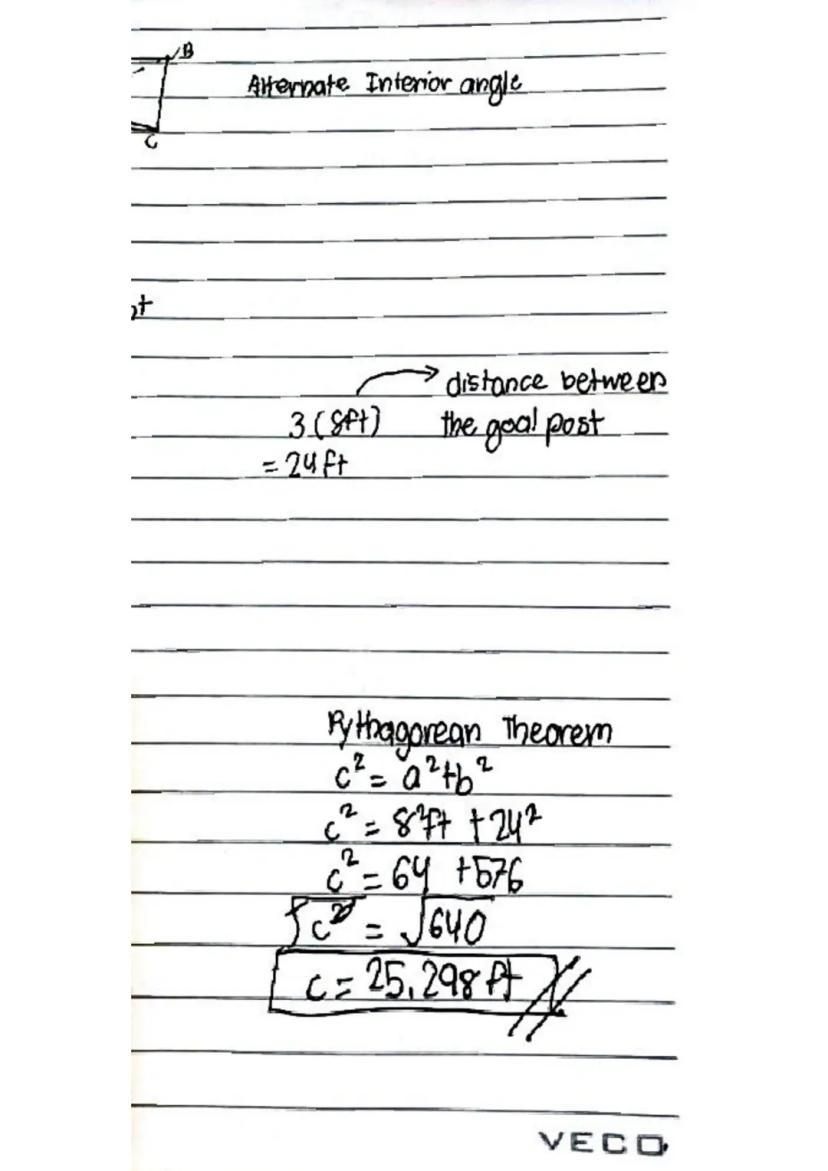 B
Alternate Interior angle
C
distance between
3 (8ft) the goal post
= 24 ft
Pythagorean Theorem
c² = a²+b²
c² = 8²ft + 24²
c² = 64 + 576
√c² = √640
c = 25.298 ft
VECO